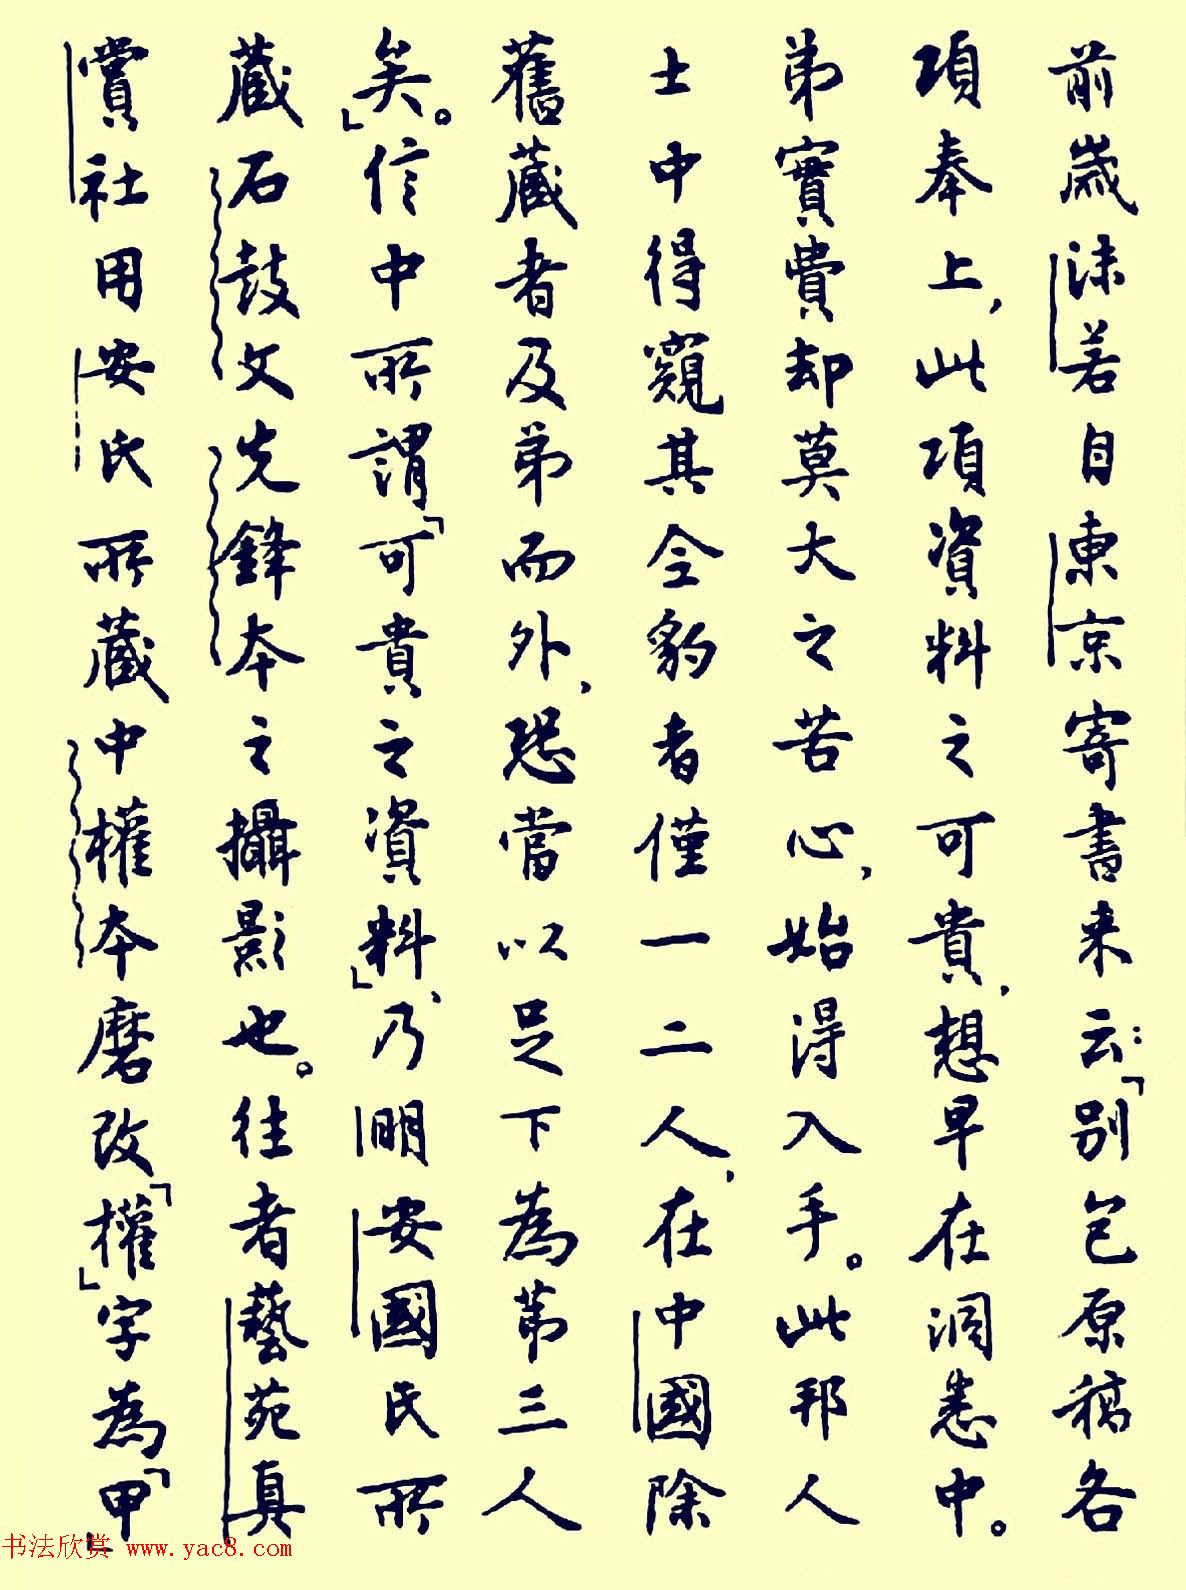 前歲沫若自東京寄書来云：「别包原稿各
項奉上，此項資料之可貴，想早在洞悉中。
弟實費却莫大之苦心，始得入手。此邦人
士中得窺其全豹者僅一二人，在中國除
舊藏者及弟而外，恐當以足下為第三人
矣。」信中所謂「可貴之資料」，乃朙安國氏所
藏石鼓文先鋒本之攝影也。往者藝苑真
賞社用安氏所藏中權本磨改「權」字為「甲」
书法欣赏 www.yac8.com